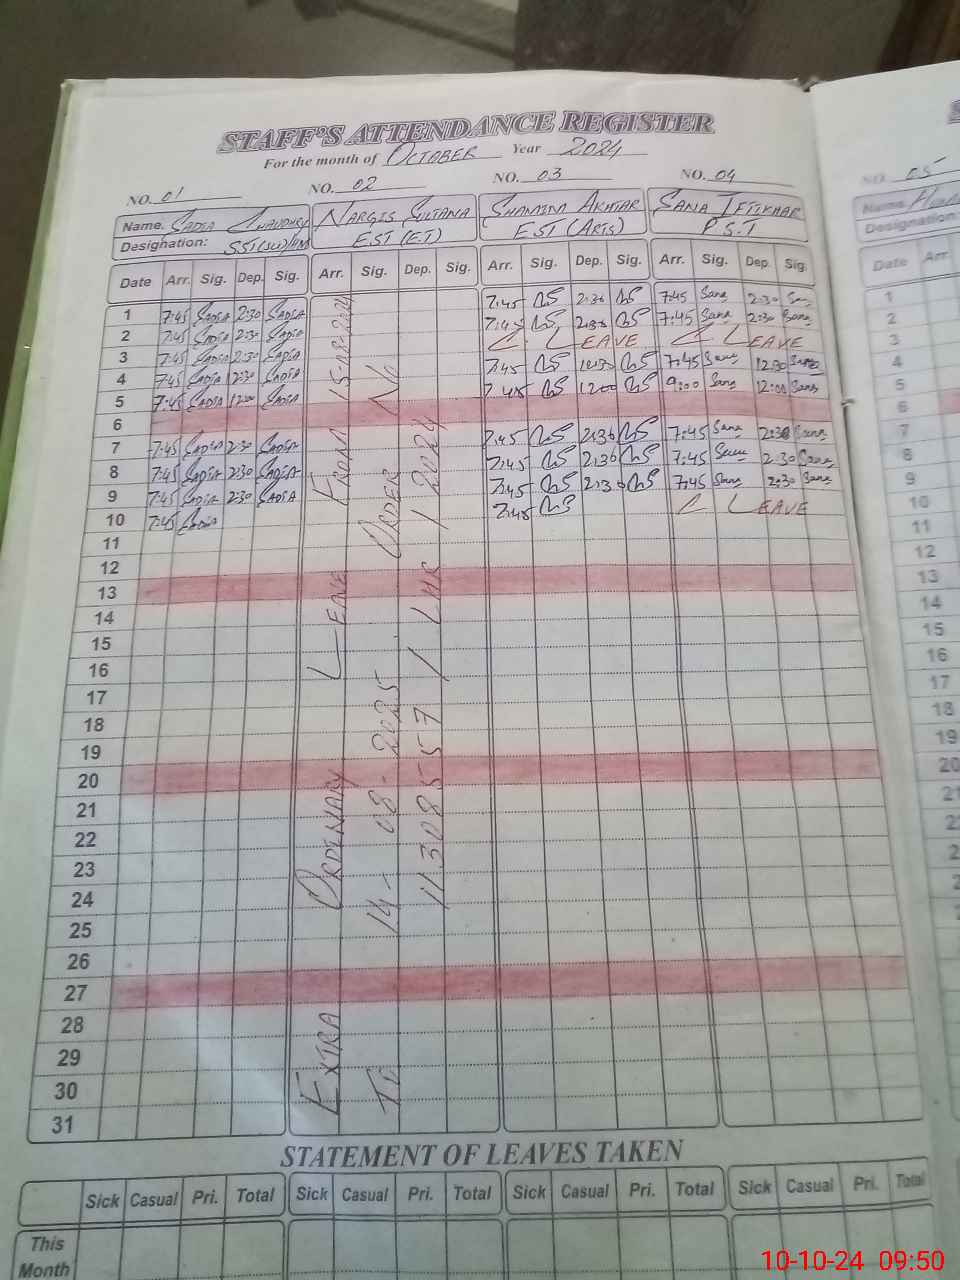 STAFF'S ATTENDANCE REGISTER
For the month of OCTOBER Year 2024
NO. 01 NO. 02 NO. 03 NO. 04 NO. 05
Name. SADIA CHAUDHRY NARGIS SULTANA SHAMIM AKHTAR SANA IFTIKHAR Name.
Designation: EST (E.T) EST (ARTS) P.S.T Designation:
Date Arr. Sig. Dep. Sig. Arr. Sig. Dep. Sig. Arr. Sig. Dep. Sig. Arr. Sig. Dep. Sig. Date Arr
1 7:45 SADIA 2:30 SADIA 7:45 2:30 7:45 Sana 2:30 1
2 7:45 SADIA 2:30 SADIA 7:45 2:30 7:45 Sana 2:30 Sana 2
3 7:45 SADIA 2:30 SADIA C. LEAVE C LEAVE 3
4 7:45 SADIA 12:30 SADIA 7:45 12:30 7:45 Sana 12:30 Sana 4
5 7:45 SADIA 12:00 SADIA 7:45 12:00 9:00 Sana 12:00 Sana 5
6 6
7 7:45 SADIA 2:30 SADIA 7:45 2:30 7:45 Sana 2:30 Sana 7
8 7:45 SADIA 2:30 SADIA 7:45 2:30 7:45 Sana 2:30 Sana 8
9 7:45 SADIA 2:30 SADIA 7:45 2:30 7:45 Sana 2:30 Sana 9
10 7:45 SADIA 7:45 C LEAVE 10
11 11
12 12
13 13
14 14
15 15
16 16
17 17
18 18
19 19
20 20
21 21
22 2
23 2
24
25
26
27
28
29
30
31
EXTRA ORDINARY LEAVE FROM
To 14-08-2025 ORDER No
11308557 / LHR / 2024
STATEMENT OF LEAVES TAKEN
Sick Casual Pri. Total Sick Casual Pri. Total Sick Casual Pri. Total Sick Casual Pri. Total
This
Month
10-10-24 09:50